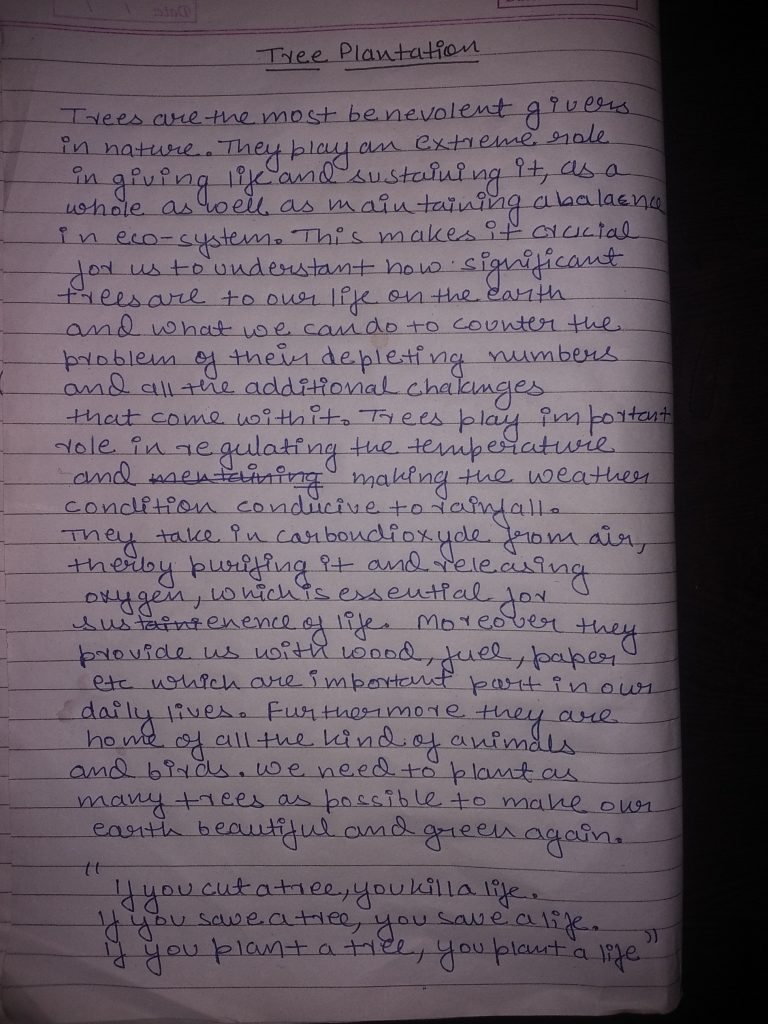 Tree Plantation
Trees are the most benevolent givers
in nature. They play an extreme role
in giving life and sustaining it, as a
whole as well as maintaining a balaence
in eco-system. This makes it crucial
for us to understant how significant
trees are to our life on the earth
and what we can do to counter the
problem of their depleting numbers
and all the additional
that come with it. Trees play important
role in regulating the temperature
and mentaining making the weather
condition conducive to rainfall.
They take in carbondioxyde from air,
therby purifing it and releasing
oxygen, which is essential for
of life. Moreover they
provide us with wood, fuel, paper
etc which are important part in our
daily lives. Furthermore they are
home of all the kind of animals
and birds. We need to plant as
many trees as possible to make our
earth beautiful and green again.
"If you cut a tree, you kill a life.
If you save a tree, you save a life.
If you plant a tree, you plant a life"